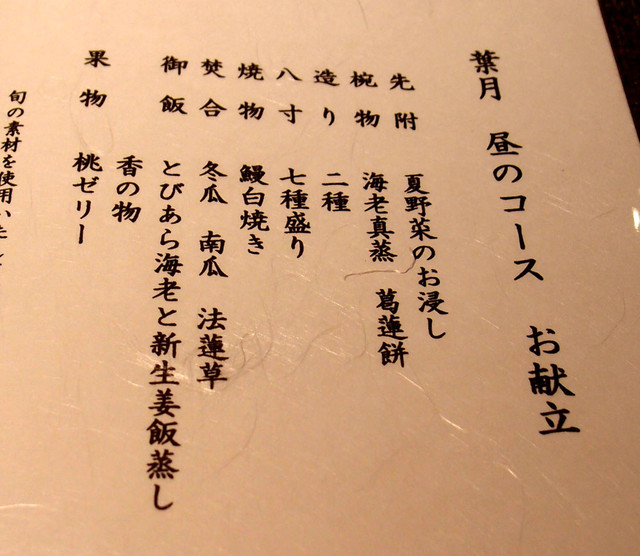 葉月 昼のコース お献立
先附 夏野菜のお浸し
椀物 海老真蒸 葛蓮餅
造り 二種
八寸 七種盛り
焼物 鰻白焼き
焚合 冬瓜 南瓜 法蓮草
御飯 とびあら海老と新生姜飯蒸し
香の物
果物 桃ゼリー
旬の素材を使用いたし